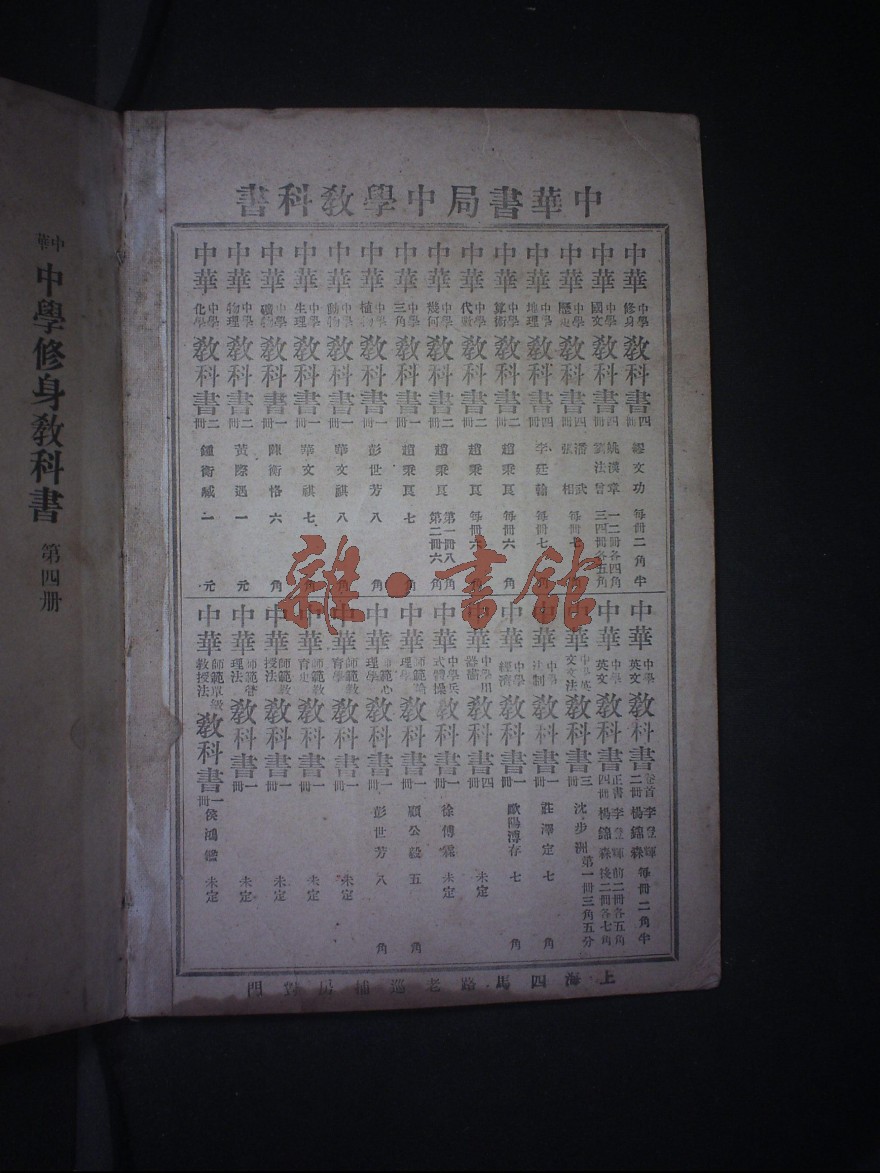 中華書局中學教科書
中華中學修身教科書四冊 繆文功 每冊二角半
中華中學國文教科書四冊 姚漢章 劉法曾 一二冊各四角 三四冊各五角
中華中學歷史教科書四冊 潘武 張相 每冊七
中華中學地理教科書四冊 李廷翰 每冊七
中華中學算術教科書二冊 趙秉良 每冊六角
中華中學代數教科書二冊 趙秉良 每冊六角
中華中學幾何教科書二冊 趙秉良 第一冊八角 第二冊六角
中華中學三角教科書一冊 趙秉良 七
中華中學植物教科書一冊 彭世芳 八角
中華中學動物教科書一冊 華文祺 八角
中華中學生理教科書一冊 華文祺 七角
中華中學礦物教科書一冊 陳衡恪 六角
中華中學物理教科書二冊 黃際遇 一元
中華中學化學教科書二冊 鍾衡臧 一元
中華中學英文教科書卷首二冊 李登輝 楊錦森 每冊二角半
中華中學英文教科書正書四冊 李登輝 楊錦森 前二冊各五角 後二冊各七角
中華中學英文文法教科書三冊 沈步洲 第一冊三角五分
中華中學法制教科書一冊 莊澤定 七角
中華中學經濟教科書一冊 歐陽溥存 七角
中華中學用器畫教科書四冊 未定
中華中學兵式體操教科書一冊 徐傅霖 未定
中華師範論理學教科書一冊 顧公毅 五角
中華師範心理學教科書一冊 彭世芳 八角
中華師範教育學教科書一冊 未定
中華師範教育史教科書一冊 未定
中華師範教授法教科書一冊 未定
中華師範管理法教科書一冊 未定
中華師範單級教授法教科書一冊 侯鴻鑑 未定
上海四馬路老巡捕房對門
中華中學修身教科書 第四冊
雜·書館